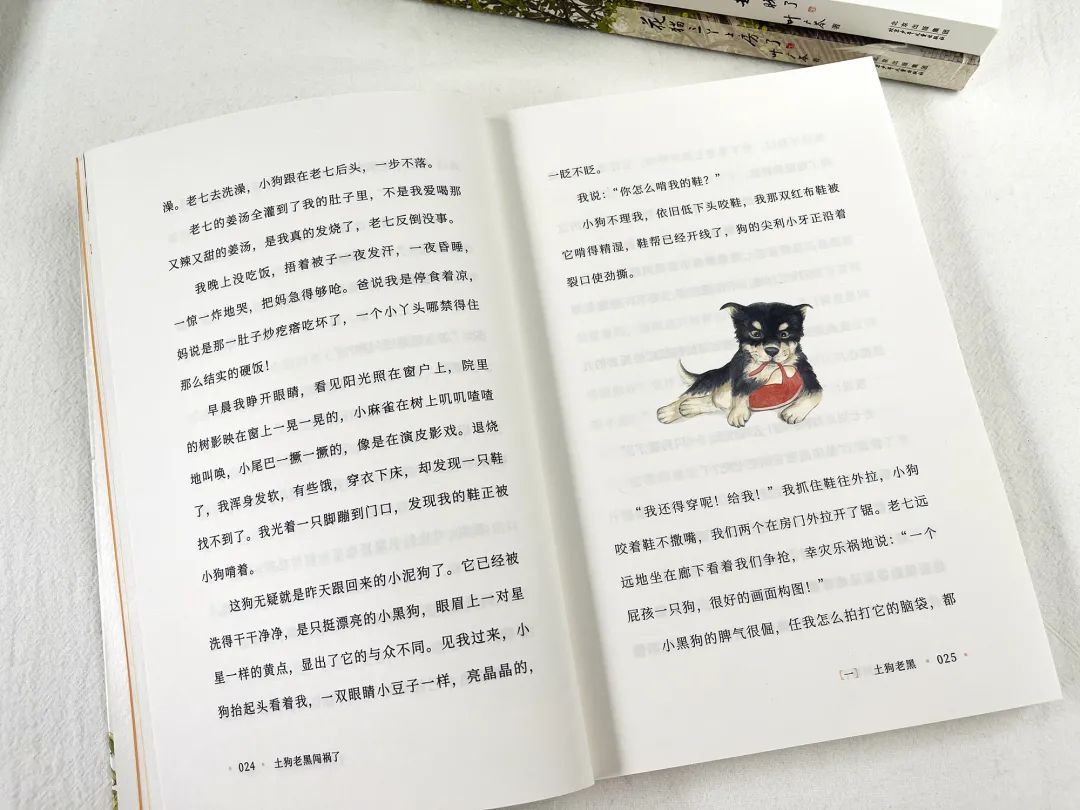 花猫三丫上房了
叶广芩 著
澡。老七去洗澡，小狗跟在老七后头，一步不落。
老七的姜汤全灌到了我的肚子里，不是我爱喝那
又辣又甜的姜汤，是我真的发烧了，老七反倒没事。
我晚上没吃饭，捂着被子一夜发汗，一夜昏睡，
一惊一炸地哭，把妈急得够呛。爸说我是停食着凉，
妈说是那一肚子炒疙瘩吃坏了，一个小丫头哪禁得住
那么结实的硬饭！
早晨我睁开眼睛，看见阳光照在窗户上，院里
的树影映在窗上一晃一晃的，小麻雀在树上叽叽喳喳
地叫唤，小尾巴一撅一撅的，像是在演皮影戏。退烧
了，我浑身发软，有些饿，穿衣下床，却发现一只鞋
找不到了。我光着一只脚蹦到门口，发现我的鞋正被
小狗啃着。
这狗无疑就是昨天跟回来的小泥狗了。它已经被
洗得干干净净，是只挺漂亮的小黑狗，眼眉上一对星
星一样的黄点，显出了它的与众不同。见我过来，小
狗抬起头看着我，一双眼睛小豆子一样，亮晶晶的，
024 · 土狗老黑闯祸了
一眨不眨。
我说：“你怎么啃我的鞋？”
小狗不理我，依旧低下头咬鞋，我那双红布鞋被
它啃得精湿，鞋帮已经开线了，狗的尖利小牙正沿着
裂口使劲撕。
“我还得穿呢！给我！”我抓住鞋往外拉，小狗
咬着鞋不撒嘴，我们两个在房门外拉开了锯。老七远
远地坐在廊下看着我们争抢，幸灾乐祸地说：“一个
屁孩一只狗，很好的画面构图！”
小黑狗的脾气很倔，任我怎么拍打它的脑袋，都
［一］ 土狗老黑 · 025